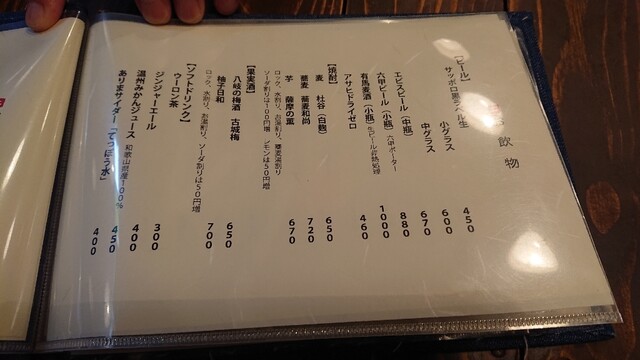 飲物
【ビール】
サッポロ黒ラベル生 小グラス 450
中グラス 600
エビスビール（中瓶） 670
六甲ビール（小瓶）六甲ポーター 880
有馬麦酒（小瓶）生ビール非熱処理 1000
アサヒドライゼロ 460
【焼酎】
麦 杜谷（白麹） 650
蕎麦 蕎麦和尚 720
芋 薩摩の薫 670
ロック、水割り、お湯割り、蕎麦湯割り
ソーダ割りは100円増 レモンは50円増
【果実酒】
八岐の梅酒 古城梅 650
柚子日和 700
ロック、水割り、お湯割り、ソーダ割りは50円増
【ソフトドリンク】
ウーロン茶 300
ジンジャーエール 400
温州みかんジュース 和歌山県産100% 450
ありまサイダー「てっぽう水」 400